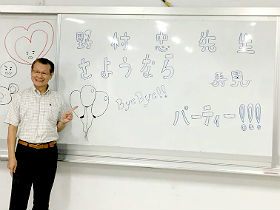 野村 忠 先生
さようなら 発見
ByeBye!!
パーティー!!!